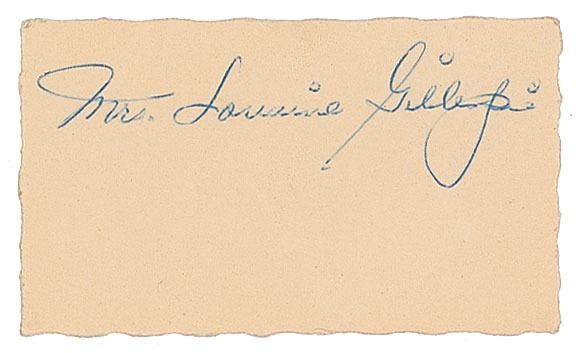 Mrs. Lorraine Gillespie